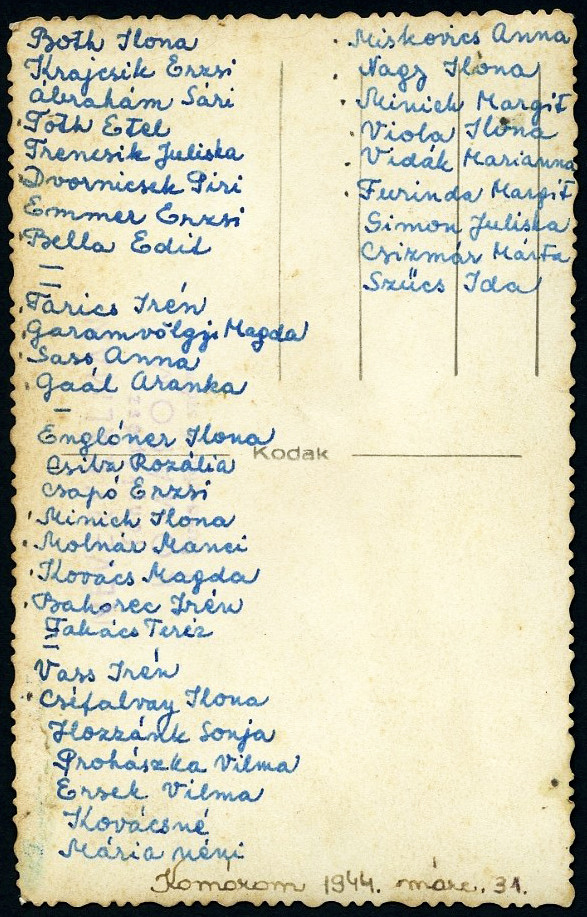 Both Ilona
Krajcsik Erzsi
Ábrahám Sári
Tóth Etel
Trencsik Juliska
Dvornicsek Piri
Emmer Erzsi
Bella Edit
—
Tarics Irén
Garamvölgyi Magda
Sass Anna
Gaál Aranka
—
Englóner Ilona
Csitz Rozália
Csapó Erzsi
Minich Ilona
Molnár Manci
Kovács Magda
Bahorec Irén
Takács Teréz
—
Vass Irén
Cséfalvay Ilona
Hozzánk Sonja
Prohászka Vilma
Érsek Vilma
Kovácsné
Mária néni
Miskovics Anna
Nagy Ilona
Minich Margit
Viola Ilona
Vidák Marianna
Furinda Margit
Simon Juliska
Csizmár Márta
Szűcs Ida
Kodak
Komárom 1944. márc. 31.